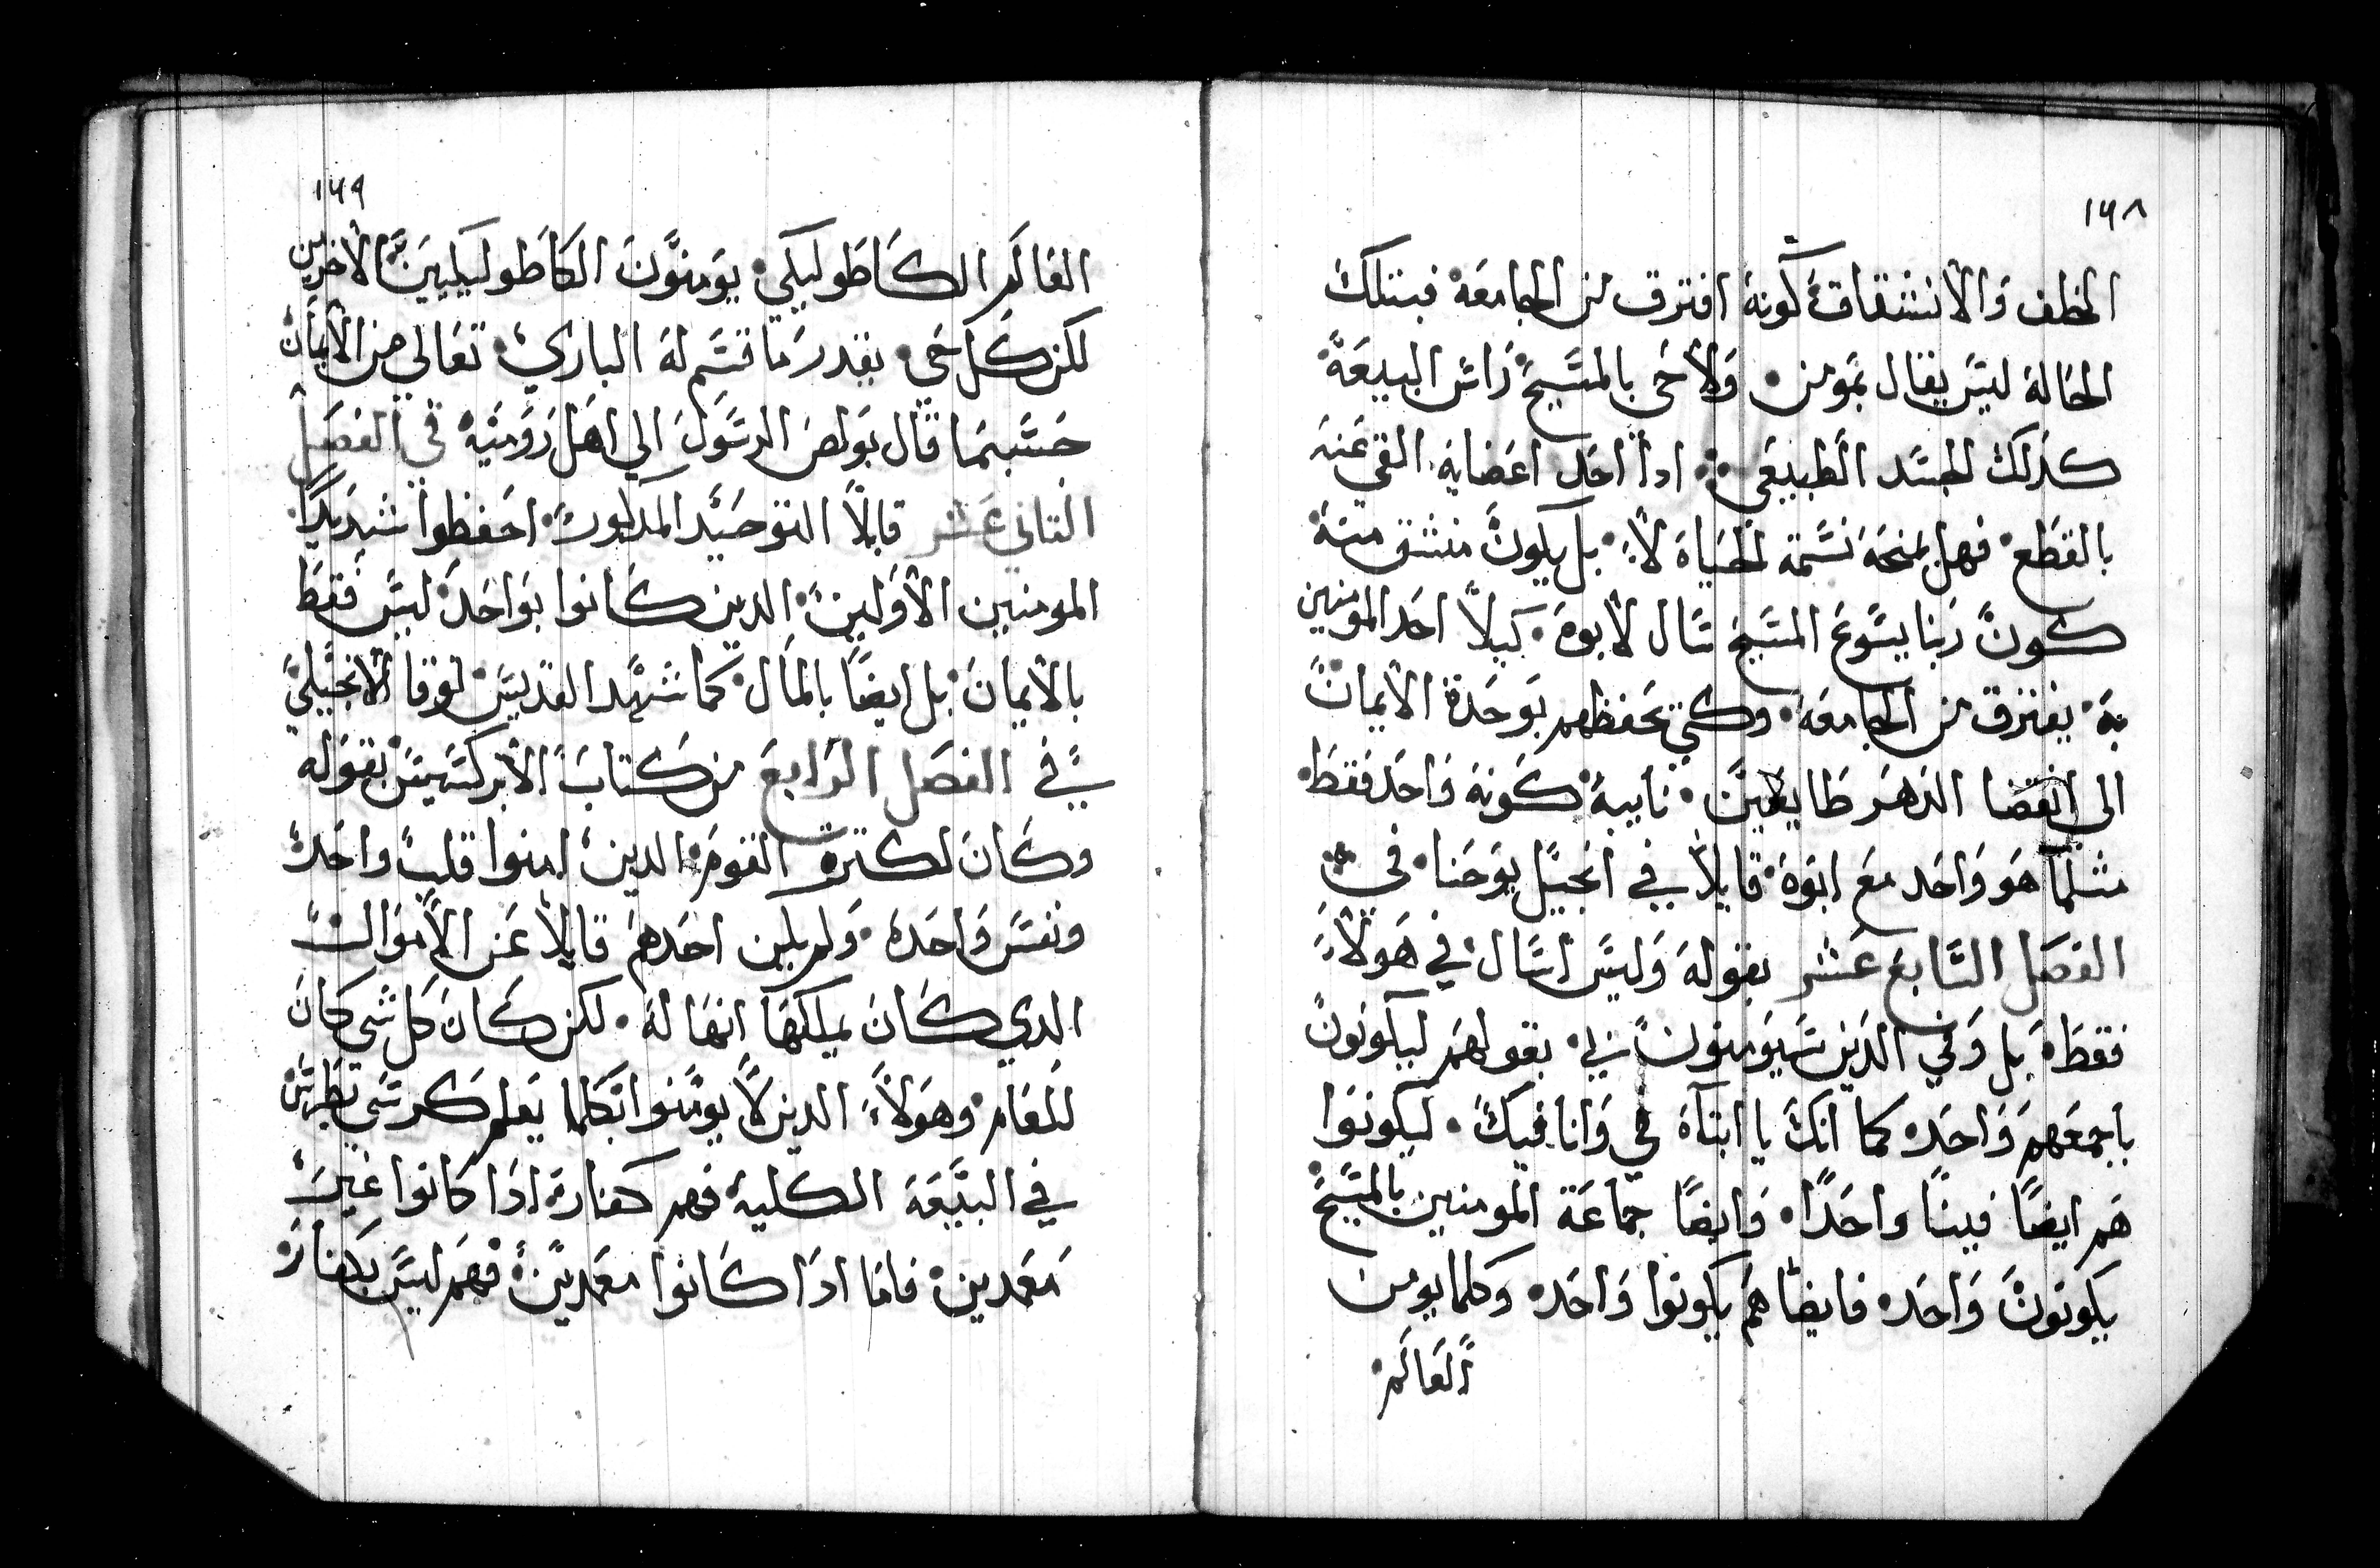 ١٦٨
الخطف والانشقاق كونه افترق من الجامعة فبتلك
الحاله ليس يقال بمومن ولا حى بالمسيح راس البيعة
كدلك الجسد الطبيعى ادا احد اعضايه القى عنه
بالقطع فهل يمنحه نسمة الحياه لا بل يكون منشق منه
كون ربنا يسوع المسيح سال لابوه كيلا احد المومنين
به يفترق من الجامعه وكي يحفظهم بوحدة الايمان
الى انقضا الدهر طايعين كونه واحد فقط
مثلما هو واحد مع ابوه قايلا في انجيل يوحنا في
الفصل السابع عشر بقوله وليس اسال في هولاء
فقط بل وفي الدين سيومنون بي بقولهم ليكونون
باجمعهم واحده كما انك يا ابتاه في وانا فيك ليكونوا
هم ايضًا فينا واحدًا وايضًا جماعة المومنين بالمسيح
يكونون واحده فايضًا هم يكونوا واحده وكلما يومن
العالم
١٦٩
العالم الكاطوليكي يومنون الكاطوليكيين الاخرين
لكن كل حي بقدر ما قسم له الباري تعالي من الايمان
حسبما قال بولص الرسول الي اهل رومية في الفصل
الثاني عشر قايلًا التوحيد المدكور احفظوا شديدًا
المومنين الاولين الدين كانوا بواحد ليس فقط
بالايمان بل ايضًا بالمال كما شهد القديس لوقا الانجيلي
في الفصل الرابع من كتاب الابركسيس بقوله
وكان لكثرة القوم الدين امنوا قلب واحد
ونفس واحده ولم يكن احدهم قايلا عن الاموال
الدي كان يملكها انها له لكن كان كل شي كان
للعام وهولاء الدين لا يومنوا بكلما يعلم كرسي بطرس
في البيعه الكليه فهم كفارة ادا كانوا غير
معمدين فاما ادا كانوا معمدين فهم ليس بكفار